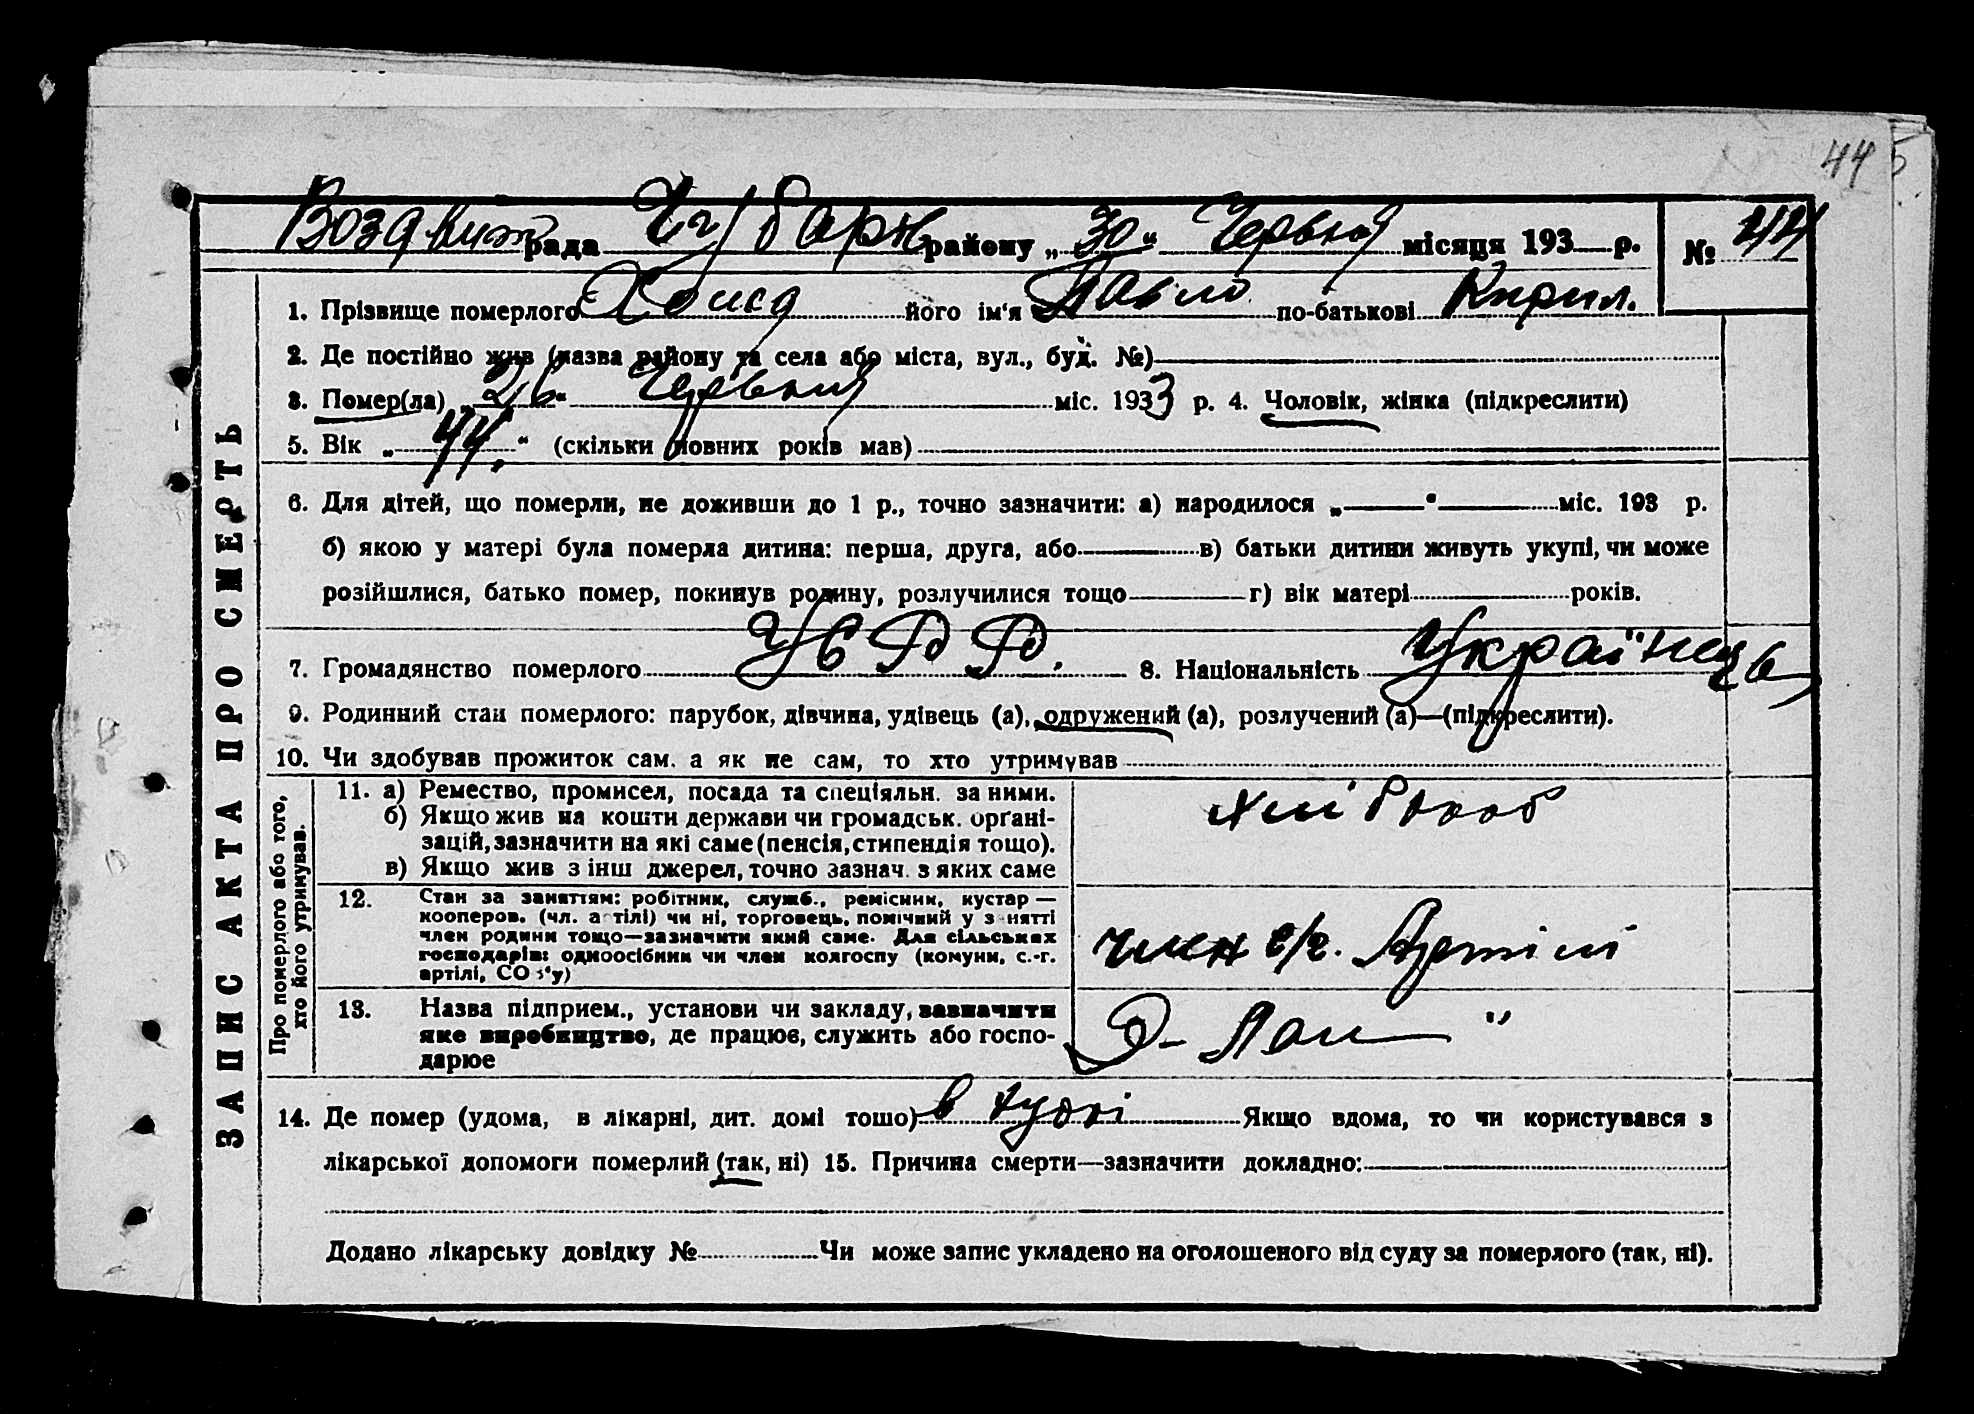 44
Воздвиж рада Чубарж району „30“ Червня місяця 193 р. № 44
1. Прізвище померлого Хоща його ім'я Павло по-батькові Кирил.
2. Де постійно жив (назва району та села або міста, вул., буд. №)
3. Помер(ла) „26“ Червня міс. 1933 р. 4. Чоловік, жінка (підкреслити)
5. Вік „44.“ (скільки повних років мав)
6. Для дітей, що померли, не доживши до 1 р., точно зазначити: а) народилося „ “ міс. 193 р.
б) якою у матері була померла дитина: перша, друга, або в) батьки дитини живуть укупі, чи може
розійшлися, батько помер, покинув родину, розлучилися тощо г) вік матері років.
7. Громадянство померлого УСРР. 8. Національність Українець
9. Родинний стан померлого: парубок, дівчина, удівець (а), одружений (а), розлучений (а)—(підкреслити).
10. Чи здобував прожиток сам, а як не сам, то хто утримував
ЗАПИС АКТА ПРО СМЕРТЬ
Про померлого або того,
хто його утримував.
11. а) Ремество, промисел, посада та спеціяльн. за ними.
б) Якщо жив на кошти держави чи громадськ. органі-
зацій, зазначити на які саме (пенсія, стипендія тощо).
в) Якщо жив з інш джерел, точно зазнач. з яких саме
хлібороб
12. Стан за заняттям: робітник, служб., ремісник, кустар —
кооперов. (чл. артілі) чи ні, торговець, помічний у занятті
член родини тощо—зазначити який саме. Для сільських
господарів: одноосібник чи член колгоспу (комуни, с.-г.
артілі, СО з'у)
член с/г. Артілі
13. Назва підприєм., установи чи закладу, зазначити
яке виробництво, де працює, служить або госпо-
дарює
14. Де помер (удома, в лікарні, дит. домі тошо) в худкі Якщо вдома, то чи користувався з
лікарської допомоги померлий (так, ні) 15. Причина смерти—зазначити докладно:
Додано лікарську довідку № Чи може запис укладено на оголошеного від суду за померлого (так, ні).